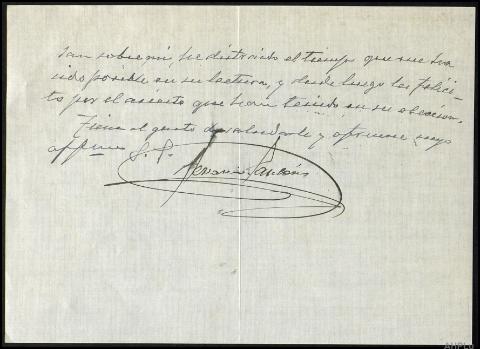 san sobre mi, he distraido el tiempo que me ha
sido posible en su lectura, y desde luego les felici-
to por el acierto que han tenido en su eleccion.
Tiene el gusto de saludarle y ofrecerse suyo
affmo S. S.